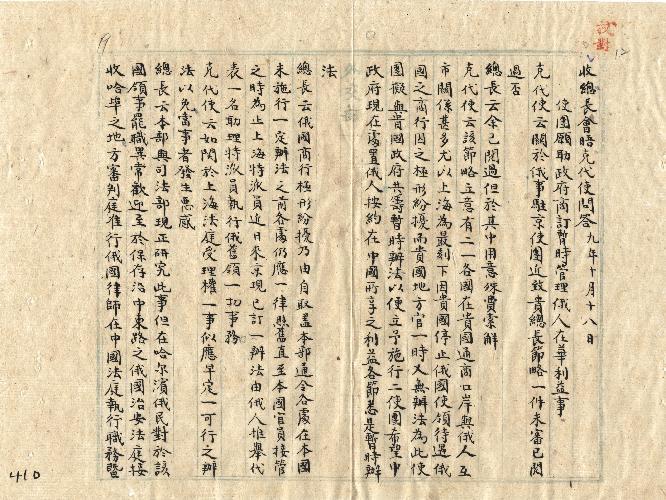 校對
12
收總長會晤克代使問答 九年十月十八日
使團願助政府商訂暫時管理俄人在華利益事
克代使云關於俄事駐京使團近致貴總長節略一件未審已閱
過否
總長云余已閱過但於其中用意殊費索解
克代使云該節略立意有二一各國在貴國通商口岸與俄人互
市關係甚多尤以上海為最刻下因貴國停止俄國使領待遇俄
國之商行因之極形紛擾而貴國地方官一時又無辦法為此使
團擬與貴國政府共籌暫時辦法以便立予施行二使團希望中
政府現在處置俄人按約在中國所享之利益各節悉是暫時辦
法
總長云俄國商行極形紛擾乃由自取蓋本部通令各處在本國
未施行一定辦法之前各處仍應一律照舊直至本國官員接管
之時為止上海特派員近日來京現已訂一辦法由俄人推舉代
表一名助理特派員執行俄舊領一切事務
克代使云如關於上海法庭受理權一事似應早定一可行之辦
法以免當事者發生惡感
總長云本部與司法部現正研究此事但在哈爾濱俄民對於該
國領事罷職異常歡迎至於保存沿中東路之俄國治安法庭接
收哈埠之地方審判庭准行俄國律師在中國法庭執行職務暨
410